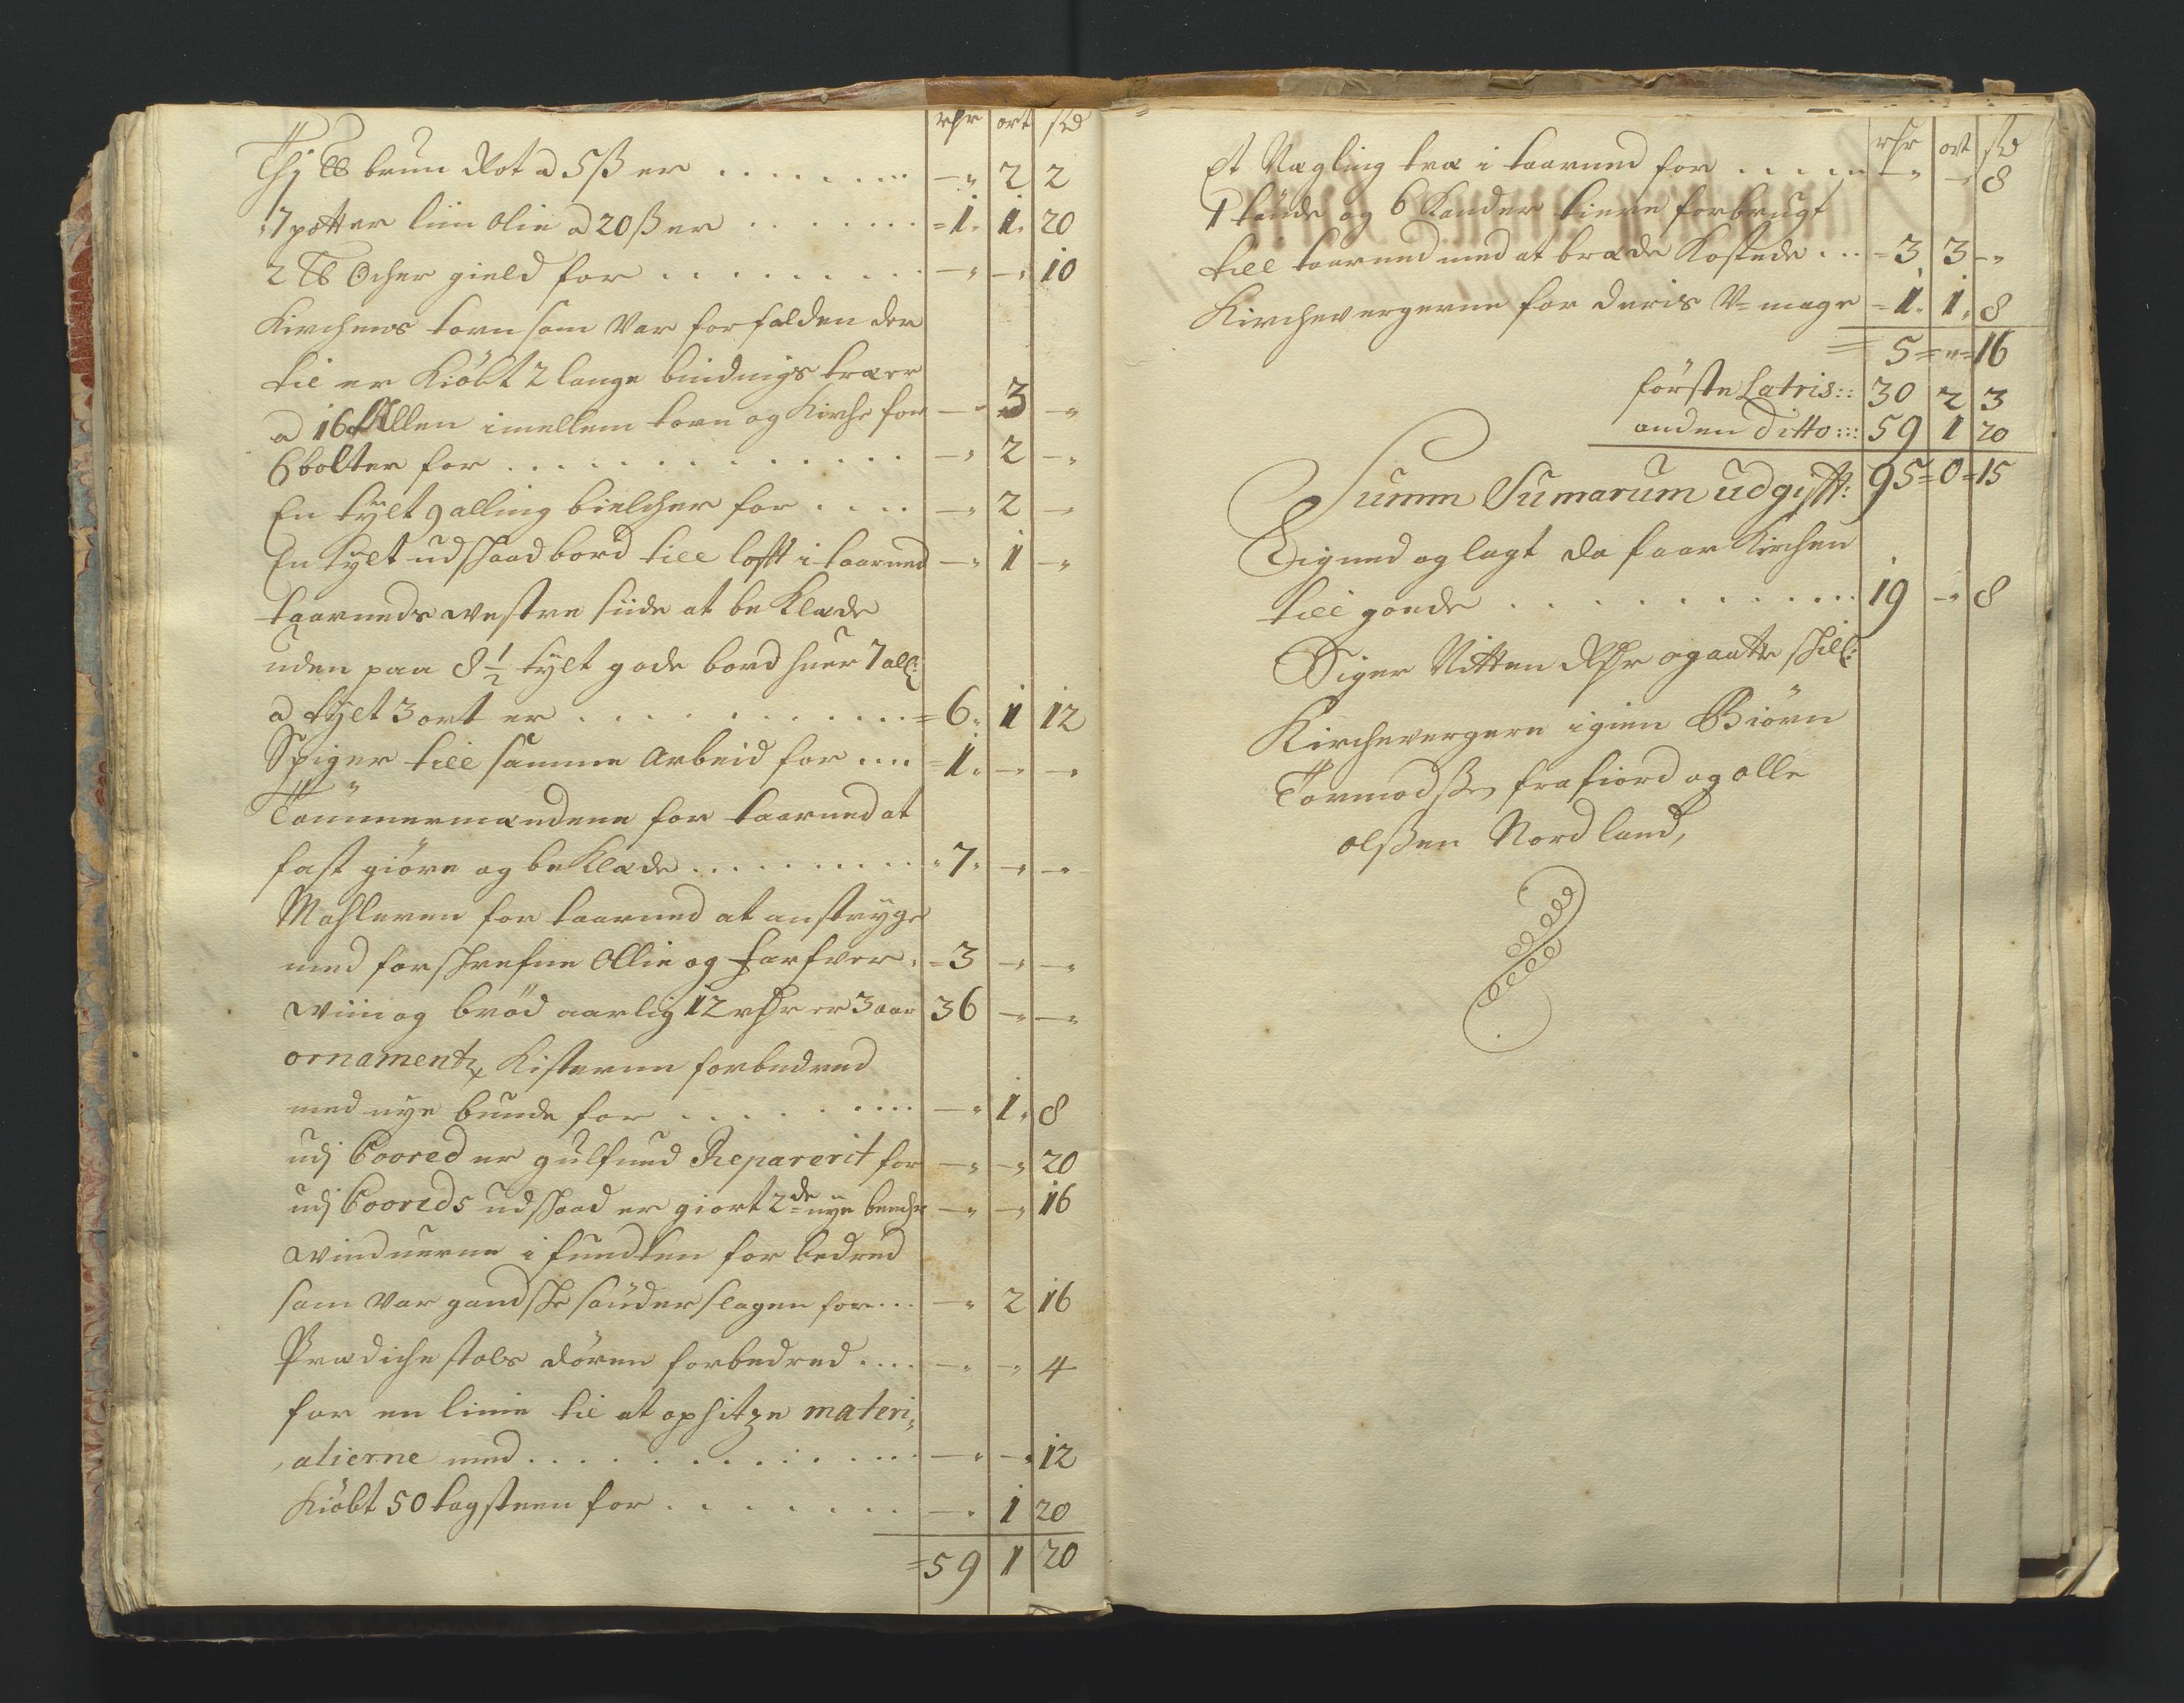 rdr ort sk
Thj ℔ brun Rot a 5 ß er ........ -" 2 2
7 potter liin olie a 20 ß er ....... =1. 1. 20
2 ℔ Ocher gield for .......... -" -" 10
Kirchens torn som var forfalden der
til er Kiöbt 2 lange bindings træer
a 16 Allen imellem torn og Kirche for -" 3 -"
6 bolter for .............. -" 2 -"
En tylt 9 alling bielcher for .... -" 2 -"
En tylt udskaad bord till loftt i taarned -" 1 -"
taarneds westre siide at beklæde
uden paa 8 1/2 tylt gode bord huer 7 all:
a tylt 3 ort er ............ =6. 1 12
Spiger till samme Arbeid for .... =1. -" -"
Tömmermændene for taarned at
fast giöre og beklæde .......... "7. -" -"
Mahleren for taarned at anstryge
med forschrefne Ollie og farfver. =3 -" -"
wiin og bröd aarlig 12 rdr er 3 aar 36 -" -"
ornamentz Kisterne forbedred
med nye bunde for ......... -" 1. 8
udj Coored er gulfued Reparerit for -" -" 20
udj Cooreds udskaad er giort 2de nye benche -" -" 16
winduerne i fundten for bedred
som var gandsche sönder slagen for ... -" 2 16
Prædiche stols dören forbedred .... -" -" 4
for en linie til at ophitze materi,
,alierne med .............. -" -" 12
Kiöbt 50 tagsteen for ........ -" 1 20
=59 1 20
rdr ort sk
Et Nagling træ i taarned for ..... -" -" 8
1 tönde og 6 Kander tiere forbrugt
till taarned med at bræde Kostede ... =3 3 -"
Kirchevergerne for deris V-mage =1. 1. 8
5 = " = 16
förste Latris :: 30 2 3
anden ditto ::: 59 1 20
Summ Sumarum udgifft: 95 = 0 = 15
Ligned og lagt da faar Kirchen
till gode ............ 19 -" 8
Siger Nitten Rdr og aatte skill:
Kirchevergere igien Biörn
Tormodßen frafiord og olle
olßen Nordland,